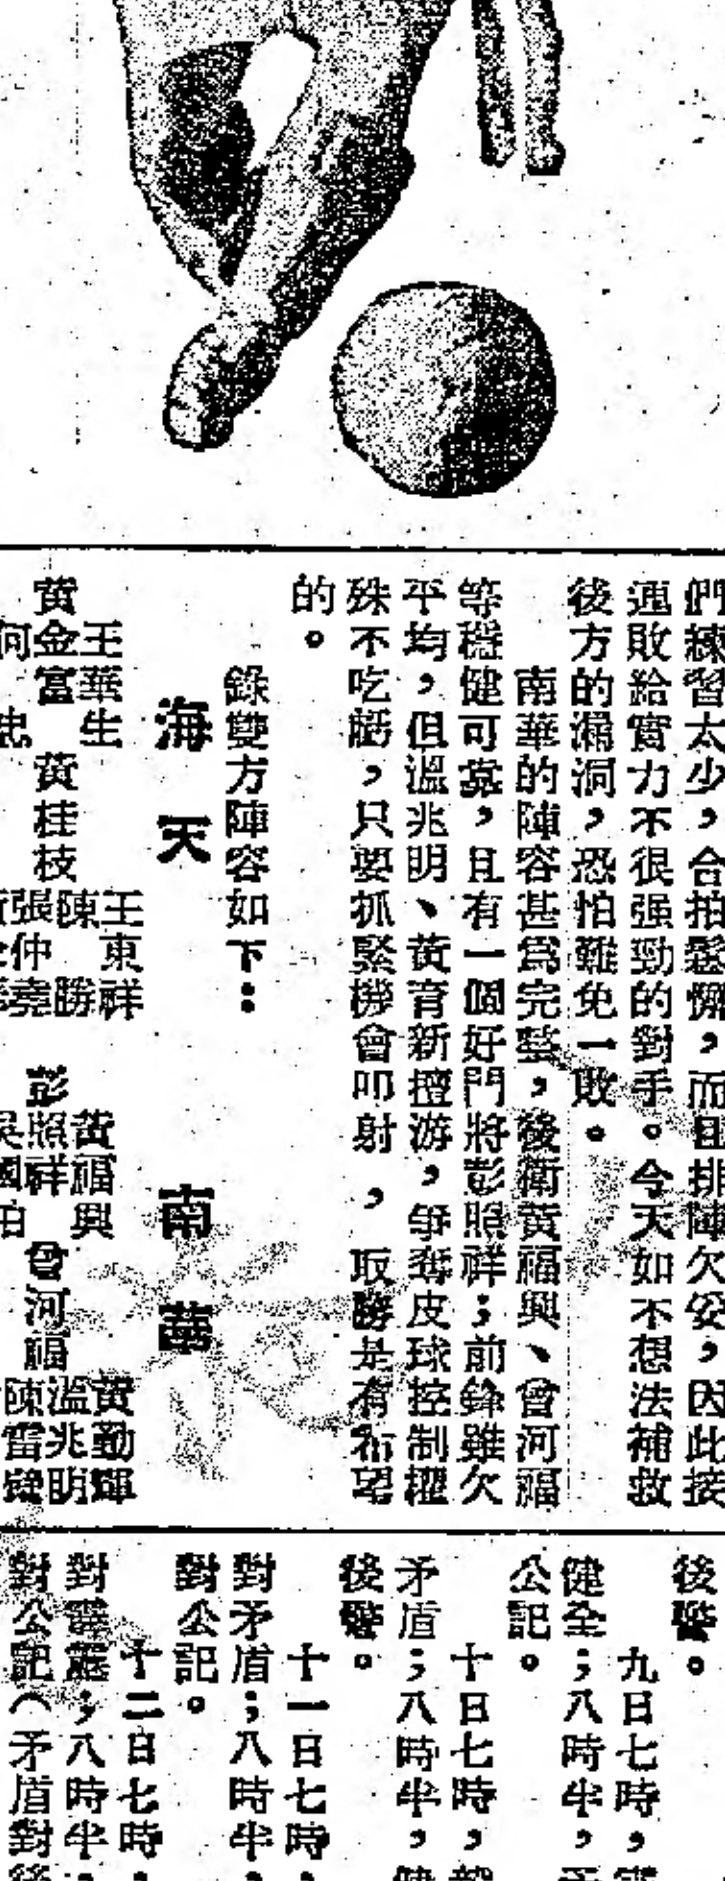 們練習太少，合拍鬆懈，而且排陣欠妥，因此接
連敗給實力不很强勁的對手。今天如不想法補救
後方的漏洞，恐怕難免一敗。
南華的陣容甚爲完整，後衛黃福興、曾河福
等穩健可靠，且有一個好門將彭照祥；前鋒雖欠
平均，但溫兆明、黃育新擅游，爭奪皮球控制權
殊不吃虧，只要抓緊機會叩射，取勝是有希望
的。
錄雙方陣容如下：
海天
王東祥
王華生
陳勝
黃金富 黃桂枝
張仲堯
何忠
南華
黃勤輝
黃福興
溫兆明
彭照祥 曾河福
陳雷
吳國柏
後警。
九日七時，
健全；八時半，
公記。
十日七時，
矛盾；八時半，健
後警。
十一日七時，
對矛盾；八時半，
對公記。
十二日七時，
對靈龍；八時半，
對公記（矛盾對後